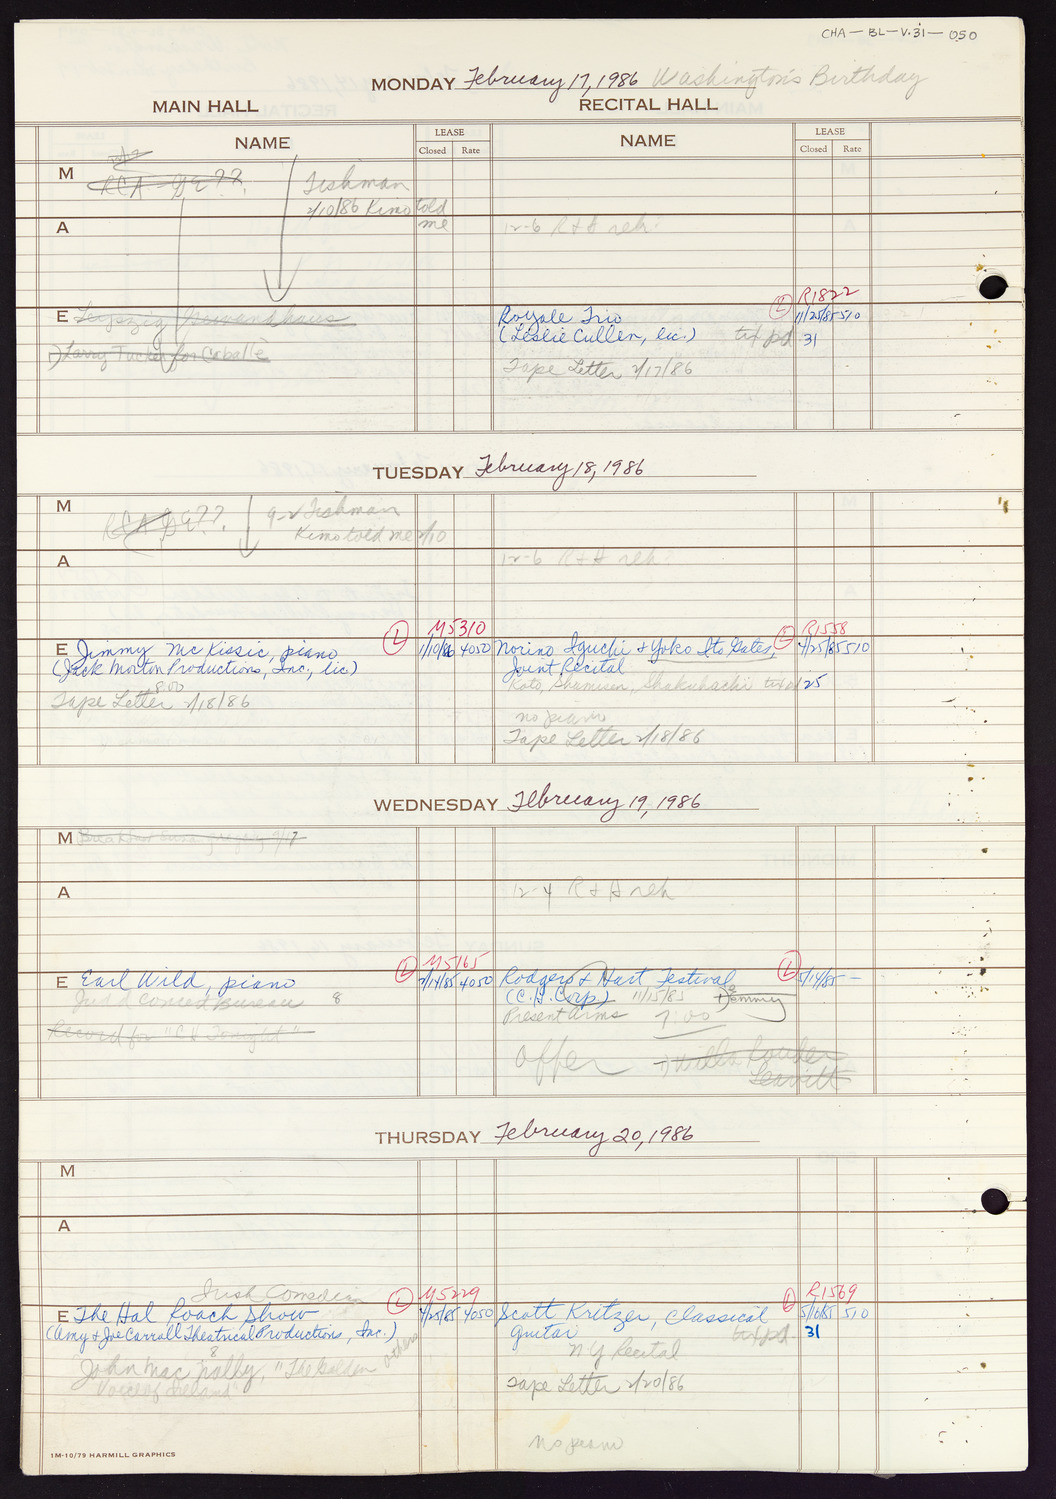 CHA-BL-V.31-050
MONDAY February 17, 1986 Washington's Birthday
MAIN HALL RECITAL HALL
NAME LEASE Closed Rate NAME LEASE Closed Rate
M RCA ??. Tishman
2/10/86 Kimo told
me
A 12-6 R+H reh.
E Leipzig Gewandhaus
Larry Tucker for Caballé
L R1822
Royale Trio 11/25/85 510
(Leslie Cullen, lic.) txt pd. 31
Tape Letter 2/17/86
TUESDAY February 18, 1986
M RCA ??. 9-2 Tishman
Kimo told me 2/10
A 12-6 R+H reh.
L M5310
E Jimmy McKissic, piano 1/10/86 4050
(Jack Morton Productions, Inc., lic)
8:00
Tape Letter 2/18/86
L R1558
Norino Iguchi + Yoko Ito Gates, 4/25/85 510
Joint Recital
Koto, Shamisen, Shakuhachi txt pd 25
no piano
Tape Letter 2/18/86
WEDNESDAY February 19, 1986
M
A 12-4 R+H reh
L M5165
E Earl Wild, piano 2/14/85 4050
Judd Concert Bureau 8
Record for "CH Tonight"
L
Rodgers + Hart Festival 5/14/85 —
(C.H. Corp) 11/15/85
Present Arms 7:00
offer
Leavitt
THURSDAY February 20, 1986
M
A
Irish Comedian
L M5229
E The Hal Roach Show 4/25/85 4050
(Amy + Joe Carroll Theatrical Productions, Inc.)
8
John Mac Nally, "The Golden
Voice of Ireland" others
L R1569
Scott Kritzer, classical 5/16/85 510
guitar txt pd. 31
NY Recital
Tape Letter 2/20/86
no piano
1M-10/79 HARMILL GRAPHICS